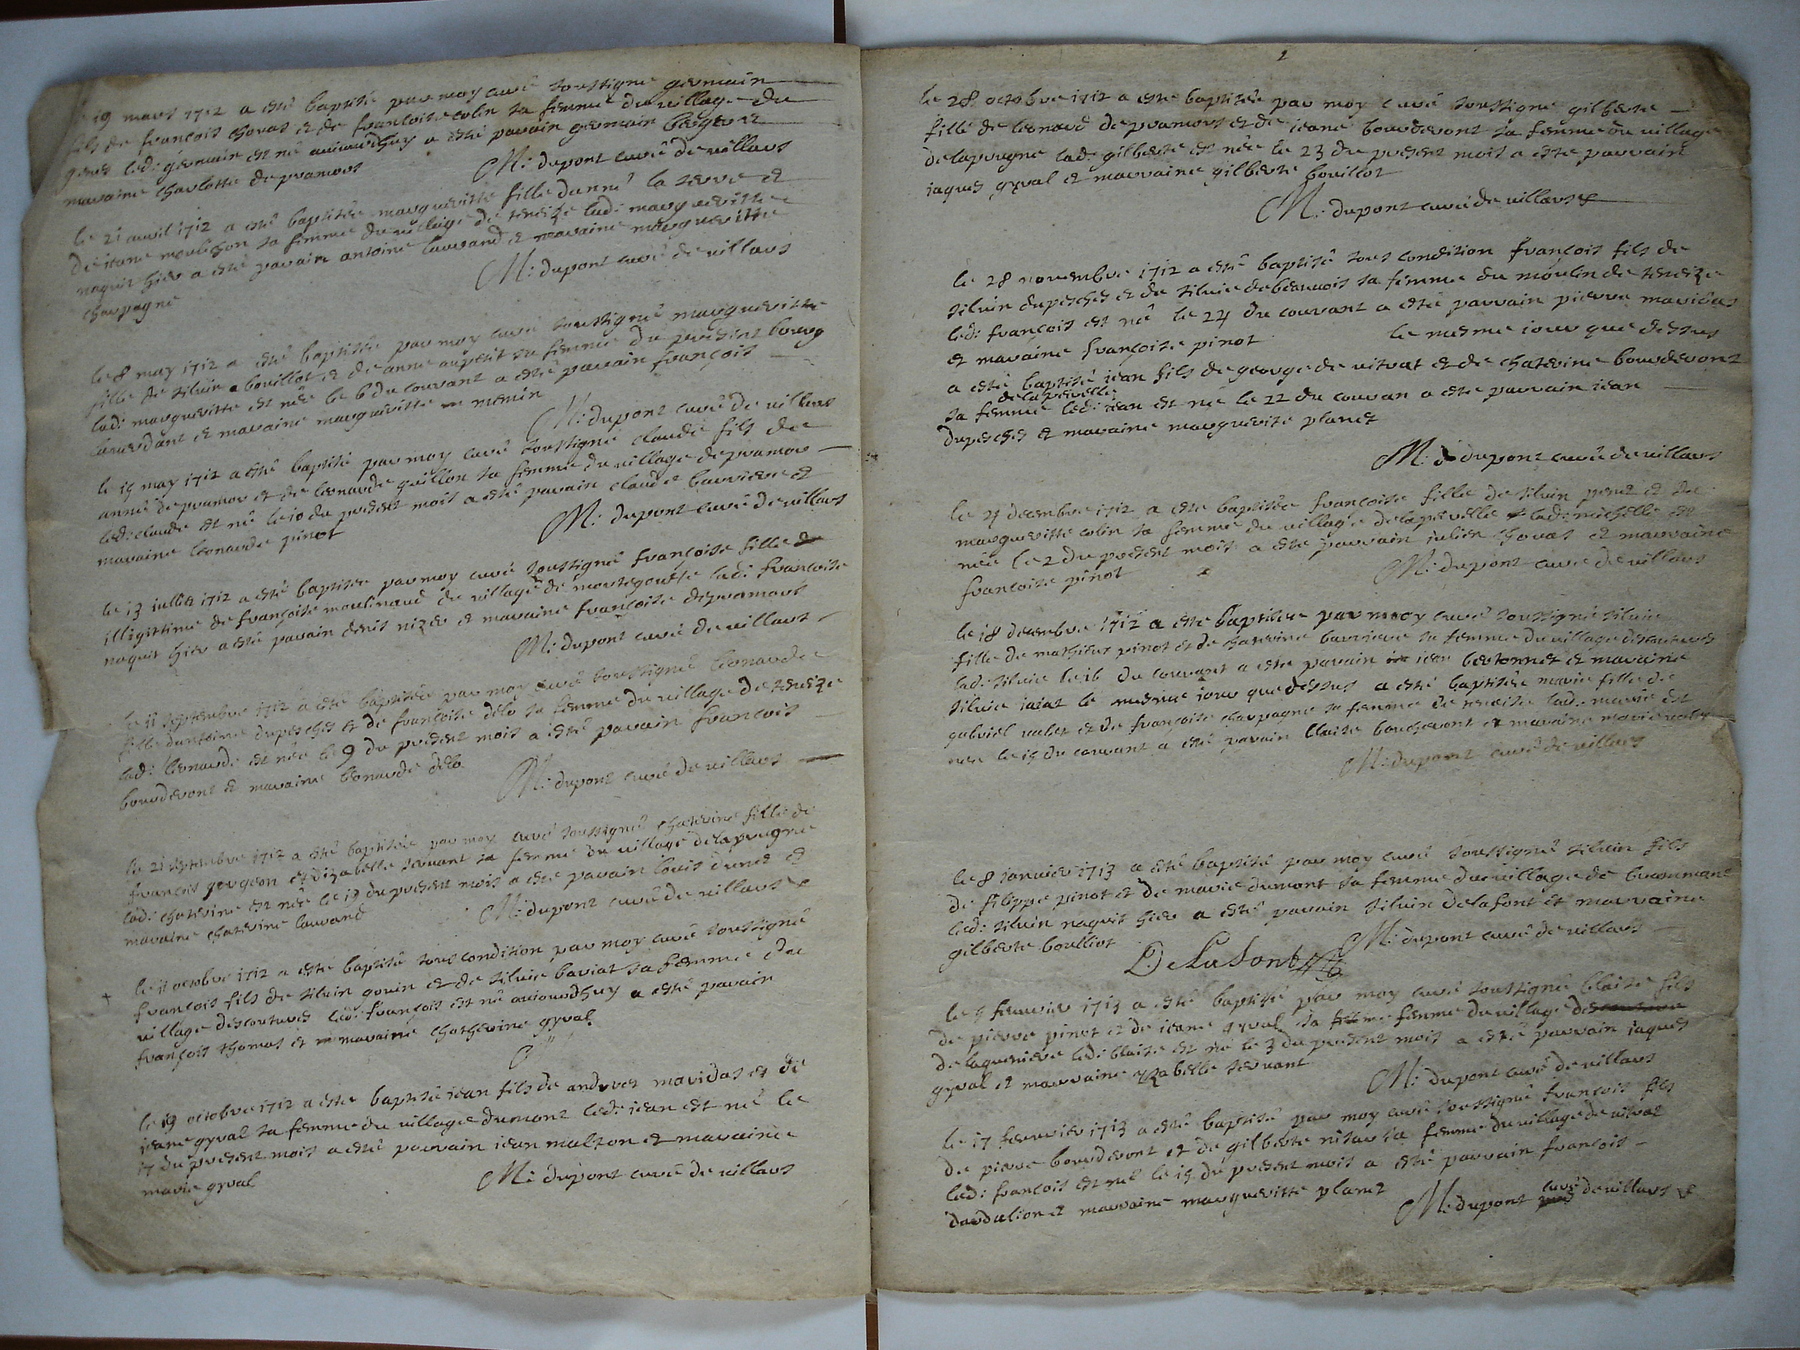 le 19 mars 1712 a esté baptisé par moy curé soussigné germain
fils de françois choras et de françoise colin sa femme du village du
led: germain est né auiourdhuy a esté parain germain bergeret
maraine charlotte de pramors
M: dupont curé de villars
le 21 avril 1712 a esté baptisée margueritte fille danne la serve et
de ieane moulichon sa femme du village de tereize lad: margueritte
naquit hier a esté parain antoine laurand et maraine margueritte
chapagne
M: dupont curé de villars
le 8 may 1712 a esté baptisée par moy curé soussigné margueritte
fille de siluin bouillot et de anne aupetit sa femme du present bourg
lad: margueritte est née le 6 du courant a esté parain françois
et maraine margueritte memin
M: dupont curé de villars
le 15 may 1712 a esté baptisé par moy curé soussigné claude fils de
anne de pramor et de leonarde guillon sa femme du village de pramor
led: claude est né le 10 du present mois a esté parain claude barriere et
maraine leonarde pinot
M: dupont curé de villars
le 13 iullet 1712 a esté baptisée par moy curé soussigné françoise fille
illegittime de françoise moulinaud du village de montegoueste lad: françoise
naquit hier a esté parain denis nizer et maraine françoise depramort
M: dupont curé de villars
le 11 septembre 1712 a esté baptisée par moy curé soussigné leonarde
fille dantoine duperchet et de françoise délo sa femme du village de tereize
lad: leonarde est née le 9 du present mois a esté parain françois
bourderont et maraine leonarde délo
M: dupont curé de villars
le 21 septembre 1712 a esté baptisée par moy curé soussigné chaterine fille de
françois gougeon et yzabelle servant sa femme du village delaprugne
lad: chaterine est née le 19 du present mois a esté parain louis et
maraine chaterine laurand
M: dupont curé de villars
le 11 octobre 1712 a esté baptisé sous condition par moy curé soussigné
françois fils de siluin gouin et de siluie baviat sa femme du
village descoutures led: françois est né auiourdhuy a esté parain
françois thomas et maraine chatherine gyval
le 19 octobre 1712 a esté baptisé iean fils de andrvet maridas et de
ieane gyval sa femme du village dumont led: iean est né le
17 du present mois a esté parain iean malzon et maraine
marie gyval
M: dupont curé de villars
2
le 28 octobre 1712 a esté baptisée par moy curé soussigné gilberte
fille de leonard de pramort et de ieane bourderont sa femme du village
delaprugne lad: gilberte est née le 23 du present mois a esté parrain
iaques gyval et marraine gilberte bouillot
M: dupont curé de villars
le 28 novembre 1712 a esté baptisé sous condition françois fils de
siluin duperchet et de siluie debernois sa femme du moulin de tereize
led: françois est né le 24 du courant a esté parrain pierre maridas
et maraine françoise pinot le mesme iour que dessus
a esté baptisé iean fils de george de vitrat et de chaterine bourderont
delaprevelle
sa femme led: iean est né le 22 du couran a esté parrain iean
duperchet et maraine marguerite planet
M: dupont curé de villars
le 4 decembre 1712 a esté baptisée françoise fille de siluin et de
margueritte colin sa femme du village delaprevelle lad: michelle est
née le 2 du present mois a esté parrain iulien choras et marraine
françoise pinot
M: dupont curé de villars
le 18 decembre 1712 a esté baptisée par moy curé soussigné siluie
fille de mathieu pinot et de chaterine barriere sa femme du village descoutures
lad: siluie le 16 du courant a esté parain iean bertonnet et maraine
siluie iaiat le mesme iour que dessus a esté baptisée marie fille de
gabriel valet et de françoise chapagne sa femme de tereise lad: marie est
née le 15 du courant a esté parain et maraine marie
M: dupont curé de villars
le 8 ianvier 1713 a esté baptisé par moy curé soussigné siluin fils
de filippe pinot et de marie dumont sa femme du village de
led: siluin naquit hier a esté parain siluin delafont et marraine
gilberte boulliot
Delafont M: dupont curé de villars
le 5 fevrier 1713 a esté baptisé par moy curé soussigné blaise fils
de pierre pinot et de ieane gyval sa femme du village
delaqueriere led: blaise est né le 3 du present mois a esté parrain iaques
gyval et marraine yzabelle servant
M: dupont curé de villars
le 17 fevrier 1713 a esté baptisé par moy curé soussigné françois fils
de pierre bourderont et de gilberte nisar sa femme du village de vitrat
led: françois est né le 15 du present mois a esté parrain françois
daudalion et marraine margueritte planet
M: dupont curé de villars